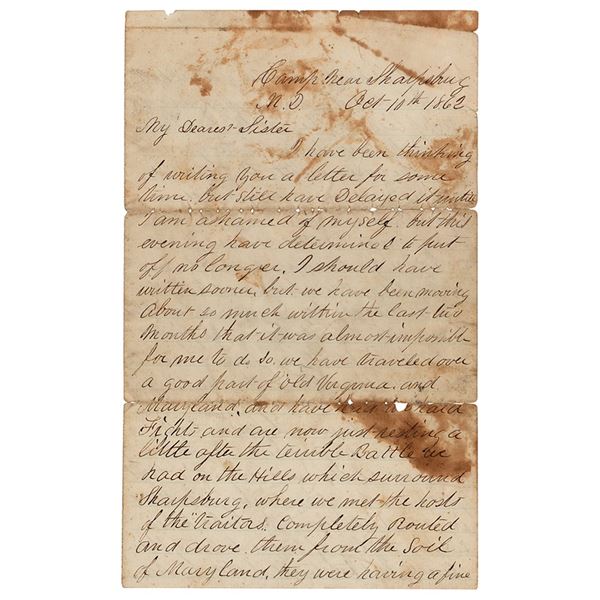 Camp Near Sharpsburg
M.D. Oct 10th 1862
My Dearest Sister
I have been thinking
of writing you a letter for some
time. but still have Delayed it untill
I am ashamed of myself. but this
evening have determined to put
off no longer, I should have
written sooner, but we have been moving
about so much within the last two
Months that it was almost impossible
for me to do so. we have traveled over
a good part of old Virginia. and
Maryland, and have had
Fight and are now just resting a
little after the terrible Battle we
had on the Hills which surround
Sharpsburg, where we met the hosts
of the Traitors. Completely Routed
and drove them from the Soil
of Maryland, they were having a fine